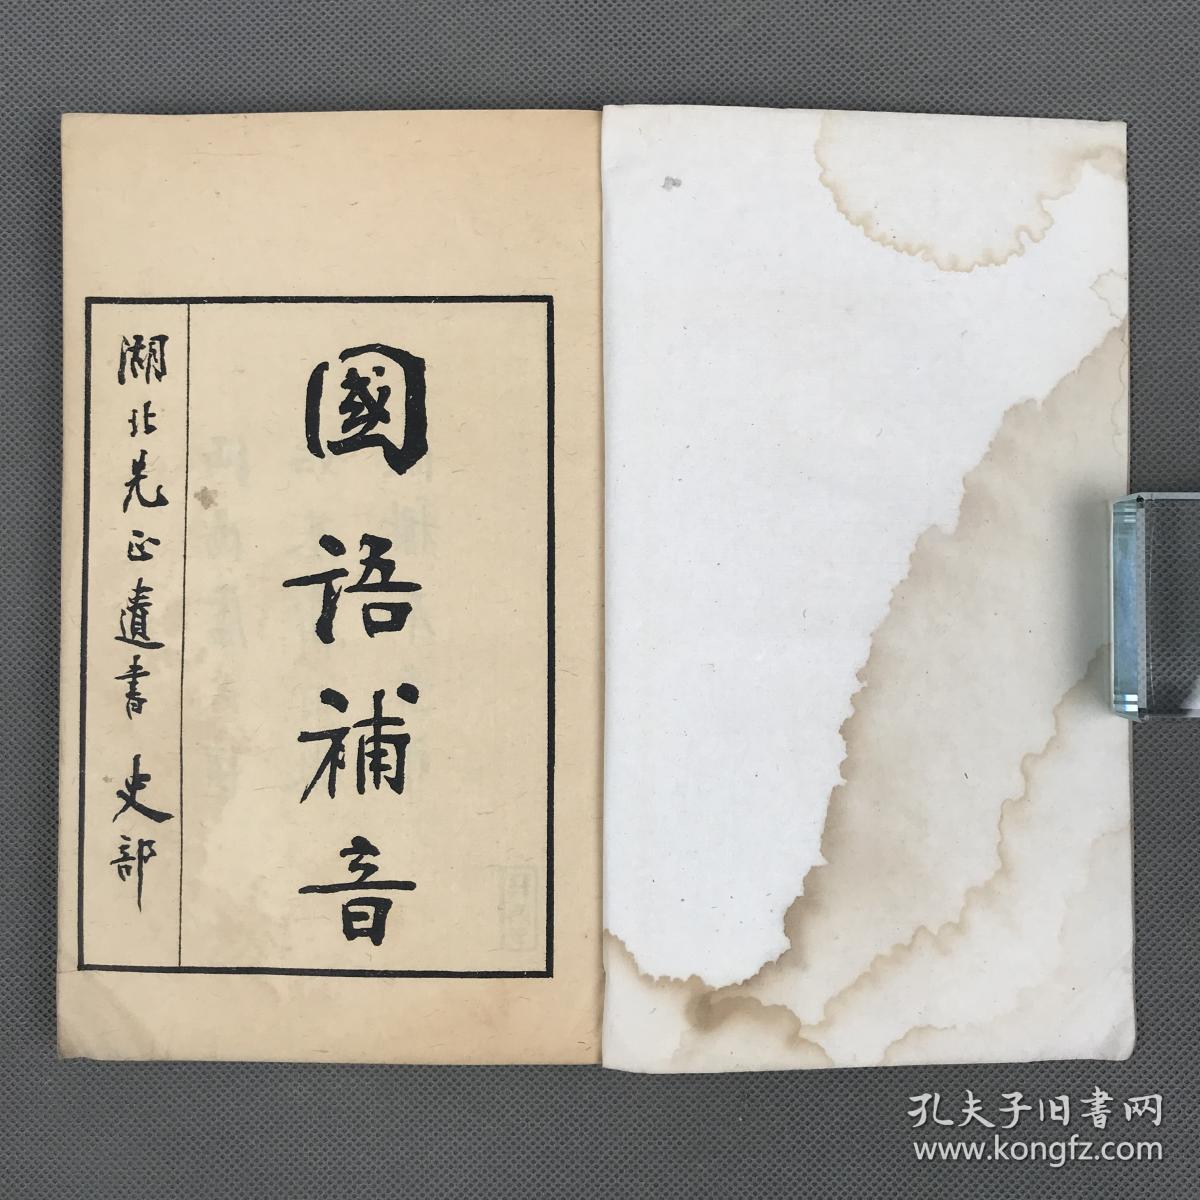 國語補音
湖北先正遺書 史部
孔夫子旧书网
www.kongfz.com